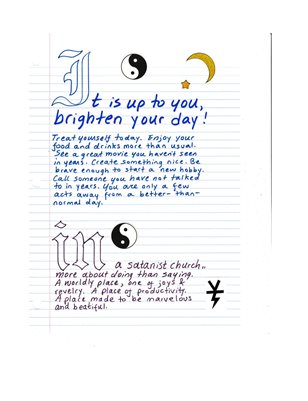 It is up to you,
brighten your day!
Treat yourself today. Enjoy your
food and drinks more than usual.
See a great movie you haven't seen
in years. Create something nice. Be
brave enough to start a new hobby.
Call someone you have not talked
to in years. You are only a few
acts away from a better-than-
normal day.
in a satanist church..
more about doing than saying.
A worldly place, one of joys &
revelry. A place of productivity.
A place made to be marvelous
and beatiful.